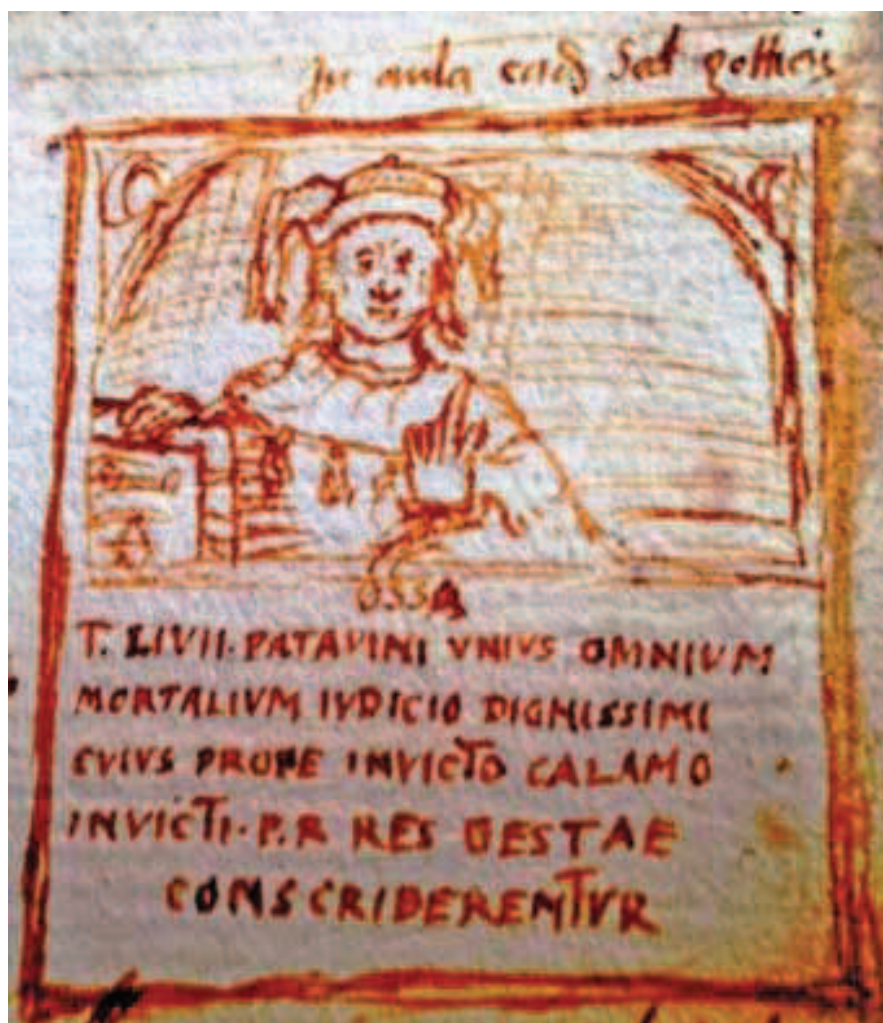 In aula
OSSA
T. LIVII. PATAVINI VNIVS OMNIVM
MORTALIVM IVDICIO DIGNISSIMI
CVIVS PROPE INVICTO CALAMO
INVICTI. P. R RES GESTAE
CONSCRIBERENTVR